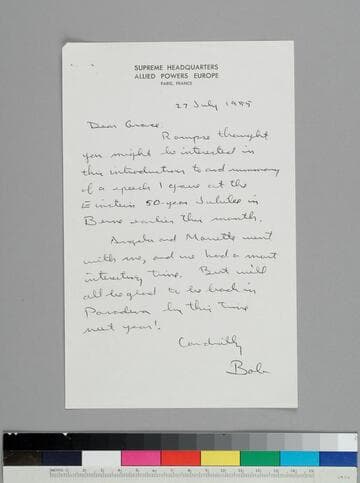 SUPREME HEADQUARTERS
ALLIED POWERS EUROPE
PARIS, FRANCE
27 July 1955
Dear Grace,
thought
you might be interested in
this introduction to and summary
of a speech I gave at the
Einstein 50-year Jubilee in
Berne earlier this month.
Angela and Mariette went
with me, and we had a most
interesting time. But will
all be glad to be back in
Pasadena by this time
next year!
Cordially
Bob